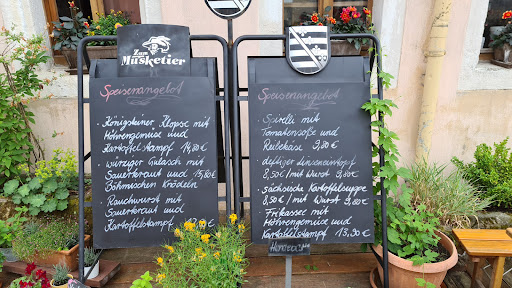 Zum
Musketier
Speisenangebot
Königsteiner Klopse mit
Möhrengemüse und
Kartoffelstampf 14,80€
würziger Gulasch mit
Sauerkraut und 15,80€
Böhmischen Knödeln
Rauchwurst mit
Sauerkraut und
Kartoffelstampf
Speisenangebot
Spirelli mit
Tomatensoße und
Reibekäse 9,80€
deftiger Linseneintopf
8,50€/mit Wurst 9,80€
sächsische Kartoffelsuppe
8,50€/mit Wurst 9,80€
Frikassee mit
Möhrengemüse und
Kartoffelstampf 13,90€